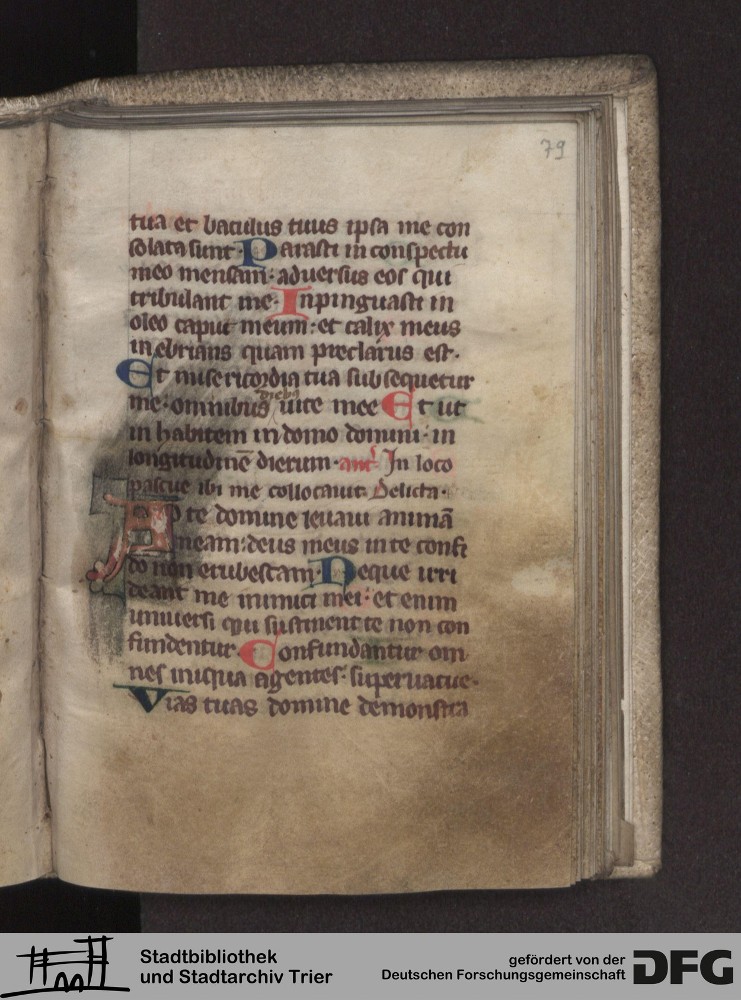 79
tua et baculus tuus ipsa me con
solata sunt· Parasti in conspectu
meo mensam: aduersus eos qui
tribulant me· Inpinguasti in
oleo caput meum: et calix meus
inebrians quam preclarus est·
Et misericordia tua subsequetur
me: omnibus diebus uite mee Et ut
in habitem in domo domini· in
longitudinē dierum· ant̄ In loco
pascue ibi me collocauit Delicta·
Ad te domine leuaui animā
meam: deus meus in te confi
do non erubescam· Neque irri
deant me inimici mei: et enim
uniuersi qui sustinent te non con
fundentur· Confundantur om
nes iniqua agentes· superuacue·
Vias tuas domine demonstra
Stadtbibliothek
und Stadtarchiv Trier
gefördert von der
Deutschen Forschungsgemeinschaft
DFG